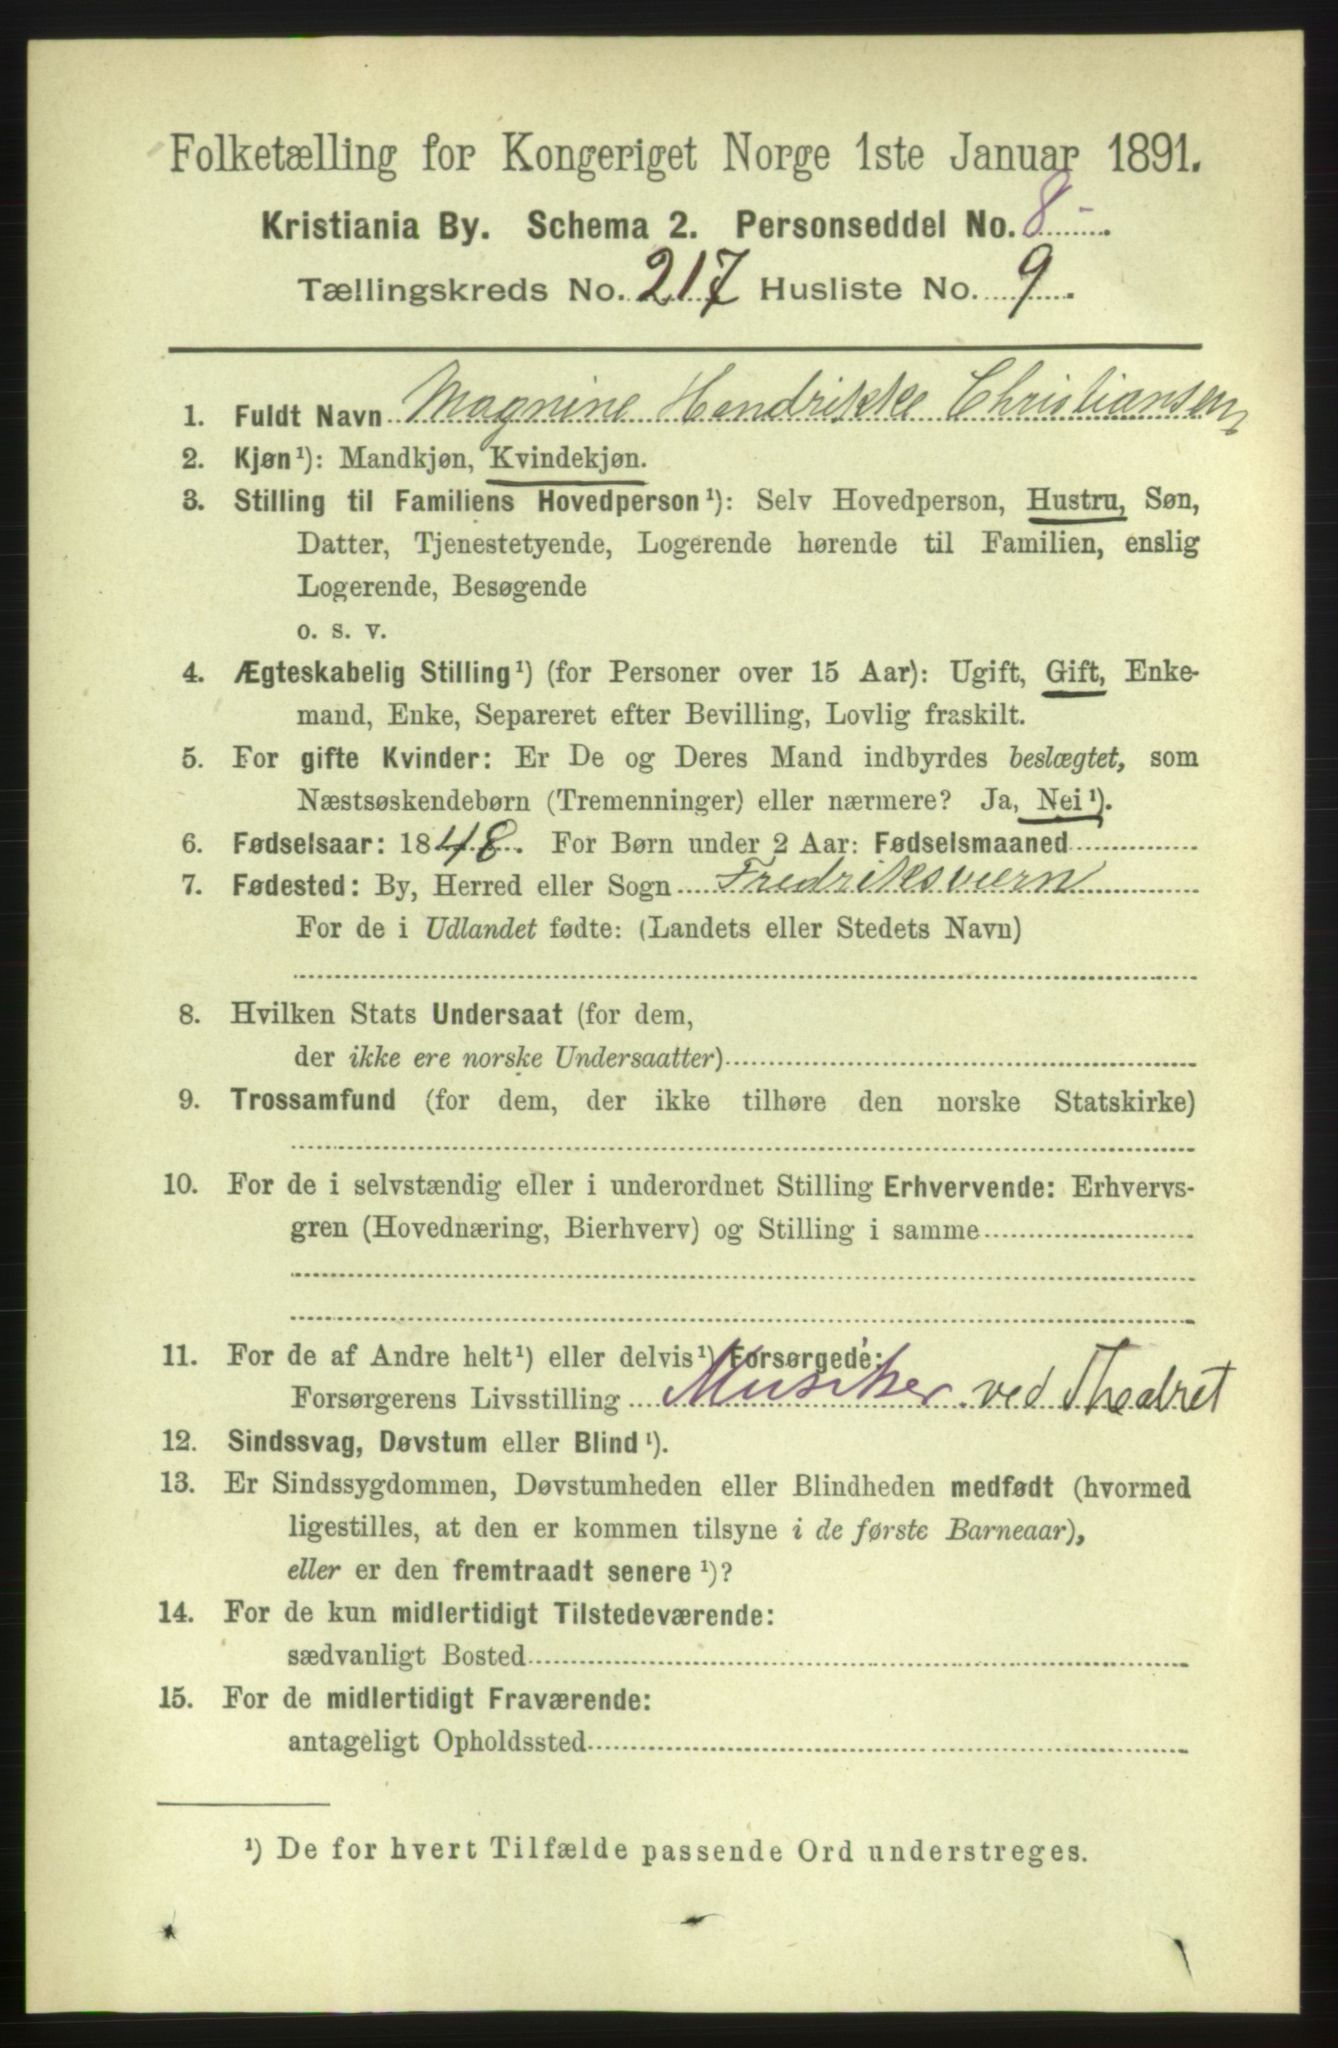 Folketælling for Kongeriget Norge 1ste Januar 1891.
Kristiania By. Schema 2. Personseddel No. 8
Tællingskreds No. 217 Husliste No. 9
1. Fuldt Navn Magnine Hendrikke Christiansen
2. Kjøn¹): Mandkjøn, Kvindekjøn.
3. Stilling til Familiens Hovedperson¹): Selv Hovedperson, Hustru, Søn,
Datter, Tjenestetyende, Logerende hørende til Familien, enslig
Logerende, Besøgende
o. s. v.
4. Ægteskabelig Stilling¹) (for Personer over 15 Aar): Ugift, Gift, Enke-
mand, Enke, Separeret efter Bevilling, Lovlig fraskilt.
5. For gifte Kvinder: Er De og Deres Mand indbyrdes beslægtet, som
Næstsøskendebørn (Tremenninger) eller nærmere? Ja, Nei¹).
6. Fødselsaar: 1848. For Børn under 2 Aar: Fødselsmaaned
7. Fødested: By, Herred eller Sogn Fredriksværn
For de i Udlandet fødte: (Landets eller Stedets Navn)
8. Hvilken Stats Undersaat (for dem,
der ikke ere norske Undersaatter)
9. Trossamfund (for dem, der ikke tilhøre den norske Statskirke)
10. For de i selvstændig eller i underordnet Stilling Erhvervende: Erhvervs-
gren (Hovednæring, Bierhverv) og Stilling i samme
11. For de af Andre helt¹) eller delvis¹) Forsørgede:
Forsørgerens Livsstilling Musiker ved Theatret
12. Sindssvag, Døvstum eller Blind¹).
13. Er Sindssygdommen, Døvstumheden eller Blindheden medfødt (hvormed
ligestilles, at den er kommen tilsyne i de første Barneaar),
eller er den fremtraadt senere¹)?
14. For de kun midlertidigt Tilstedeværende:
sædvanligt Bosted
15. For de midlertidigt Fraværende:
antageligt Opholdssted
¹) De for hvert Tilfælde passende Ord understreges.